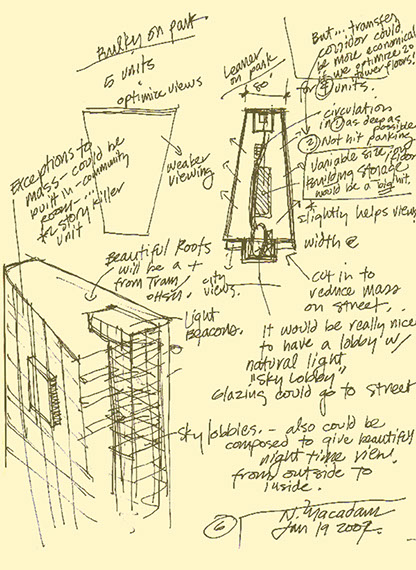 Bulky on park
5 units
optimize views
weaker
viewing
Exceptions to
mass - could be
built in - community
room -
* 2 story killer
unit
Leaner
on park
80'
But... transfer
corridor could
be more economical
if we optimize 20
fewer floors!
for 4 units.
circulation
in 1 as deep as
possible
2 Not hit parking
Variable size, on floor
Building storage
would be a big hit.
*
slightly helps view
width @
cut in to
reduce mass
on street.
city
views.
Beautiful Roofs
will be a +
from Tram/
OHSU.
Light
Beacons.
It would be really nice
to have a lobby w/
natural light
"sky lobby"
Glazing could go to street
sky lobbies. - also could be
composed to give beautiful
night time view
from outside to
inside.
6
N. Macadam
Jan 19 2007.